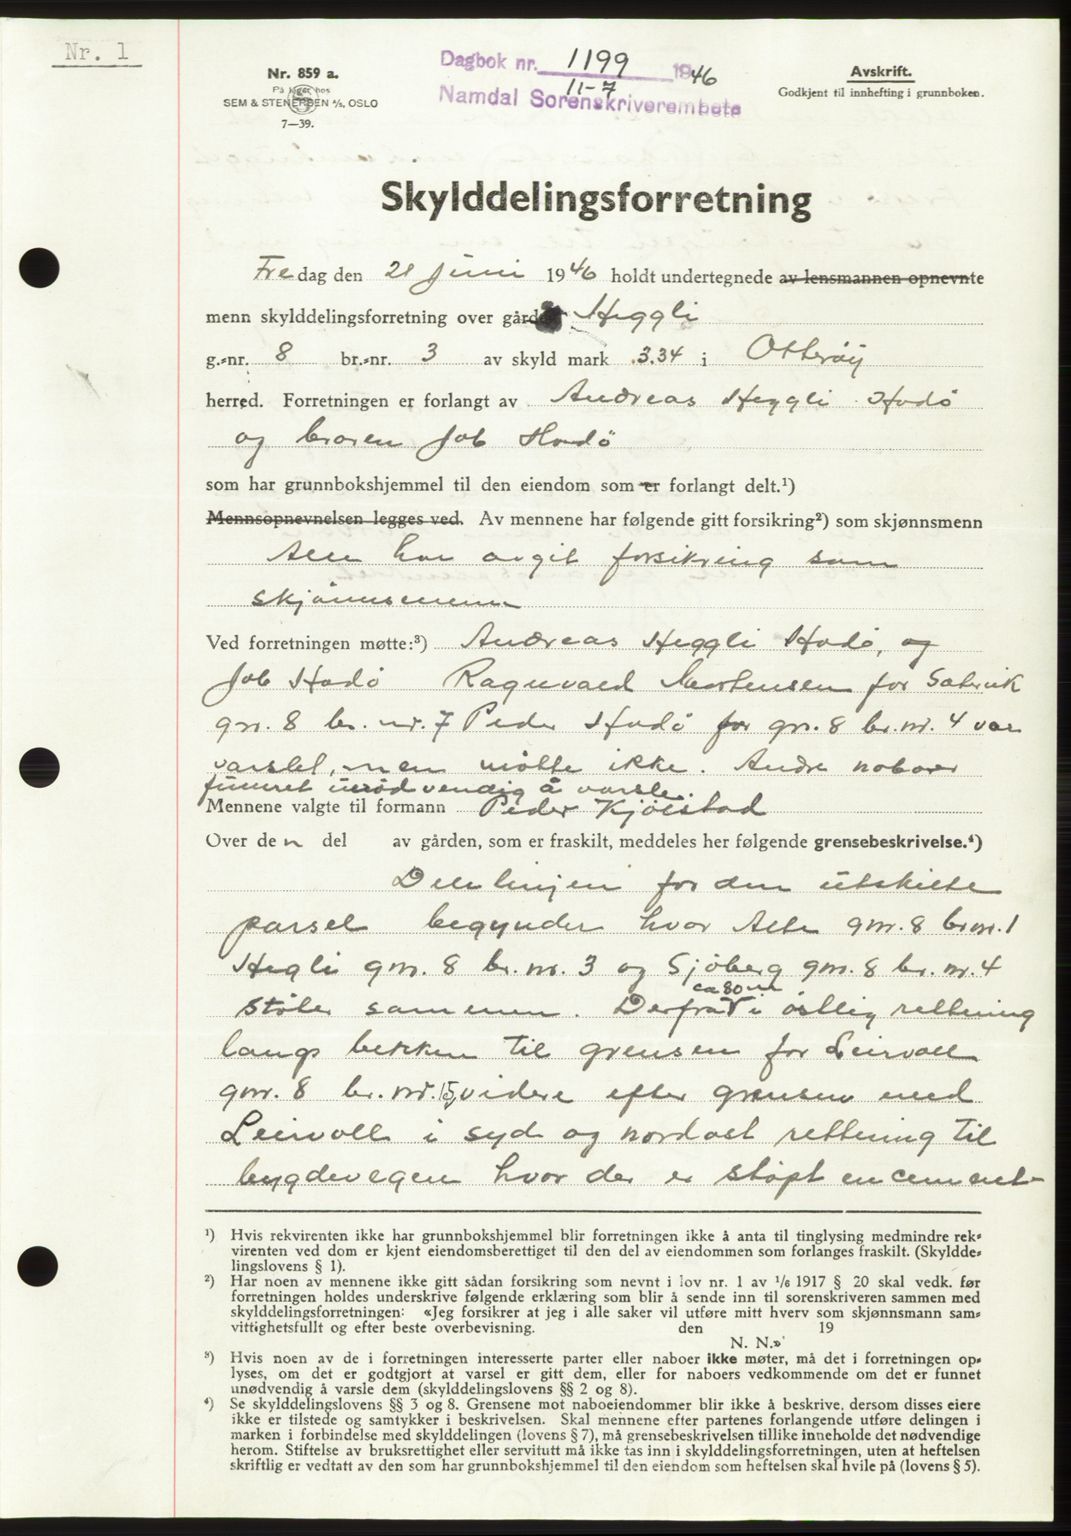 Nr. 1
Nr. 859 a.
På lager hos
SEM & STENERSEN A/S, OSLO
7—39.
Dagbok nr. 1199 1946
11-7
Namdal Sorenskriverembete
Avskrift.
Godkjent til innhefting i grunnboken.
Skylddelingsforretning
Fredag den 21 juni 1946 holdt undertegnede av lensmannen opnevnte
menn skylddelingsforretning over gården Heggli
g.-nr. 8 br.-nr. 3 av skyld mark 3.34 i Otterøy
herred. Forretningen er forlangt av Andreas Heggli Hodø
og broren Job Hodö
som har grunnbokshjemmel til den eiendom som er forlangt delt.¹)
Mennsopnevnelsen legges ved. Av mennene har følgende gitt forsikring²) som skjønnsmenn
Alle har avgit forsikring som
skjönnsmenn
Ved forretningen møtte:³) Andreas Heggli Hodö, og
Job Hodö Ragnvald Mortensen for Sætervik
gnr. 8 br. nr. 7 Peder Hodö for gnr. 8 br. nr. 4 var
varslet, men mötte ikke. Andre naboer
funnet unödvendig å varsle.
Mennene valgte til formann Peder Kjölstad
Over den del av gården, som er fraskilt, meddeles her følgende grensebeskrivelse.⁴)
Delelinjen for den utskilte
parsel begynder hvor Alte gnr. 8 brnr. 1
Hegli gnr. 8 br. nr. 3 og Sjöberg gnr. 8 br. nr. 4
ca 80 m
stöter sammen. Derfra i östlig rettning
langs bekken til grensen for Leirvoll
gnr. 8 br. nr. 15, videre efter grensen med
Leirvoll i syd og nordost rettning til
bygdevegen hvor der er stöpt en cement-
¹) Hvis rekvirenten ikke har grunnbokshjemmel blir forretningen ikke å anta til tinglysing medmindre rek-
virenten ved dom er kjent eiendomsberettiget til den del av eiendommen som forlanges fraskilt. (Skyldde-
lingslovens § 1).
²) Har noen av mennene ikke gitt sådan forsikring som nevnt i lov nr. 1 av 1/6 1917 § 20 skal vedk. før
forretningen holdes underskrive følgende erklæring som blir å sende inn til sorenskriveren sammen med
skylddelingsforretningen: «Jeg forsikrer at jeg i alle saker vil utføre mitt hverv som skjønnsmann sam-
vittighetsfullt og efter beste overbevisning. den 19
N. N.»
³) Hvis noen av de i forretningen interesserte parter eller naboer ikke møter, må det i forretningen op-
lyses, om det er godtgjort at varsel er gitt dem, eller for naboers vedkommende om det er funnet
unødvendig å varsle dem (skylddelingslovens §§ 2 og 8).
⁴) Se skylddelingslovens §§ 3 og 8. Grensene mot naboeiendommer blir ikke å beskrive, dersom disses eiere
ikke er tilstede og samtykker i beskrivelsen. Skal mennene efter partenes forlangende utføre delingen i
marken i forbindelse med skylddelingen (lovens § 7), må grensebeskrivelsen tillike inneholde det nødvendige
herom. Stiftelse av bruksrettighet eller servitutt må ikke tas inn i skylddelingsforretningen, uten at heftelsen
skriftlig er vedtatt av den som har grunnbokshjemmel til den eiendom som heftelsen skal hvile på (lovens § 5).